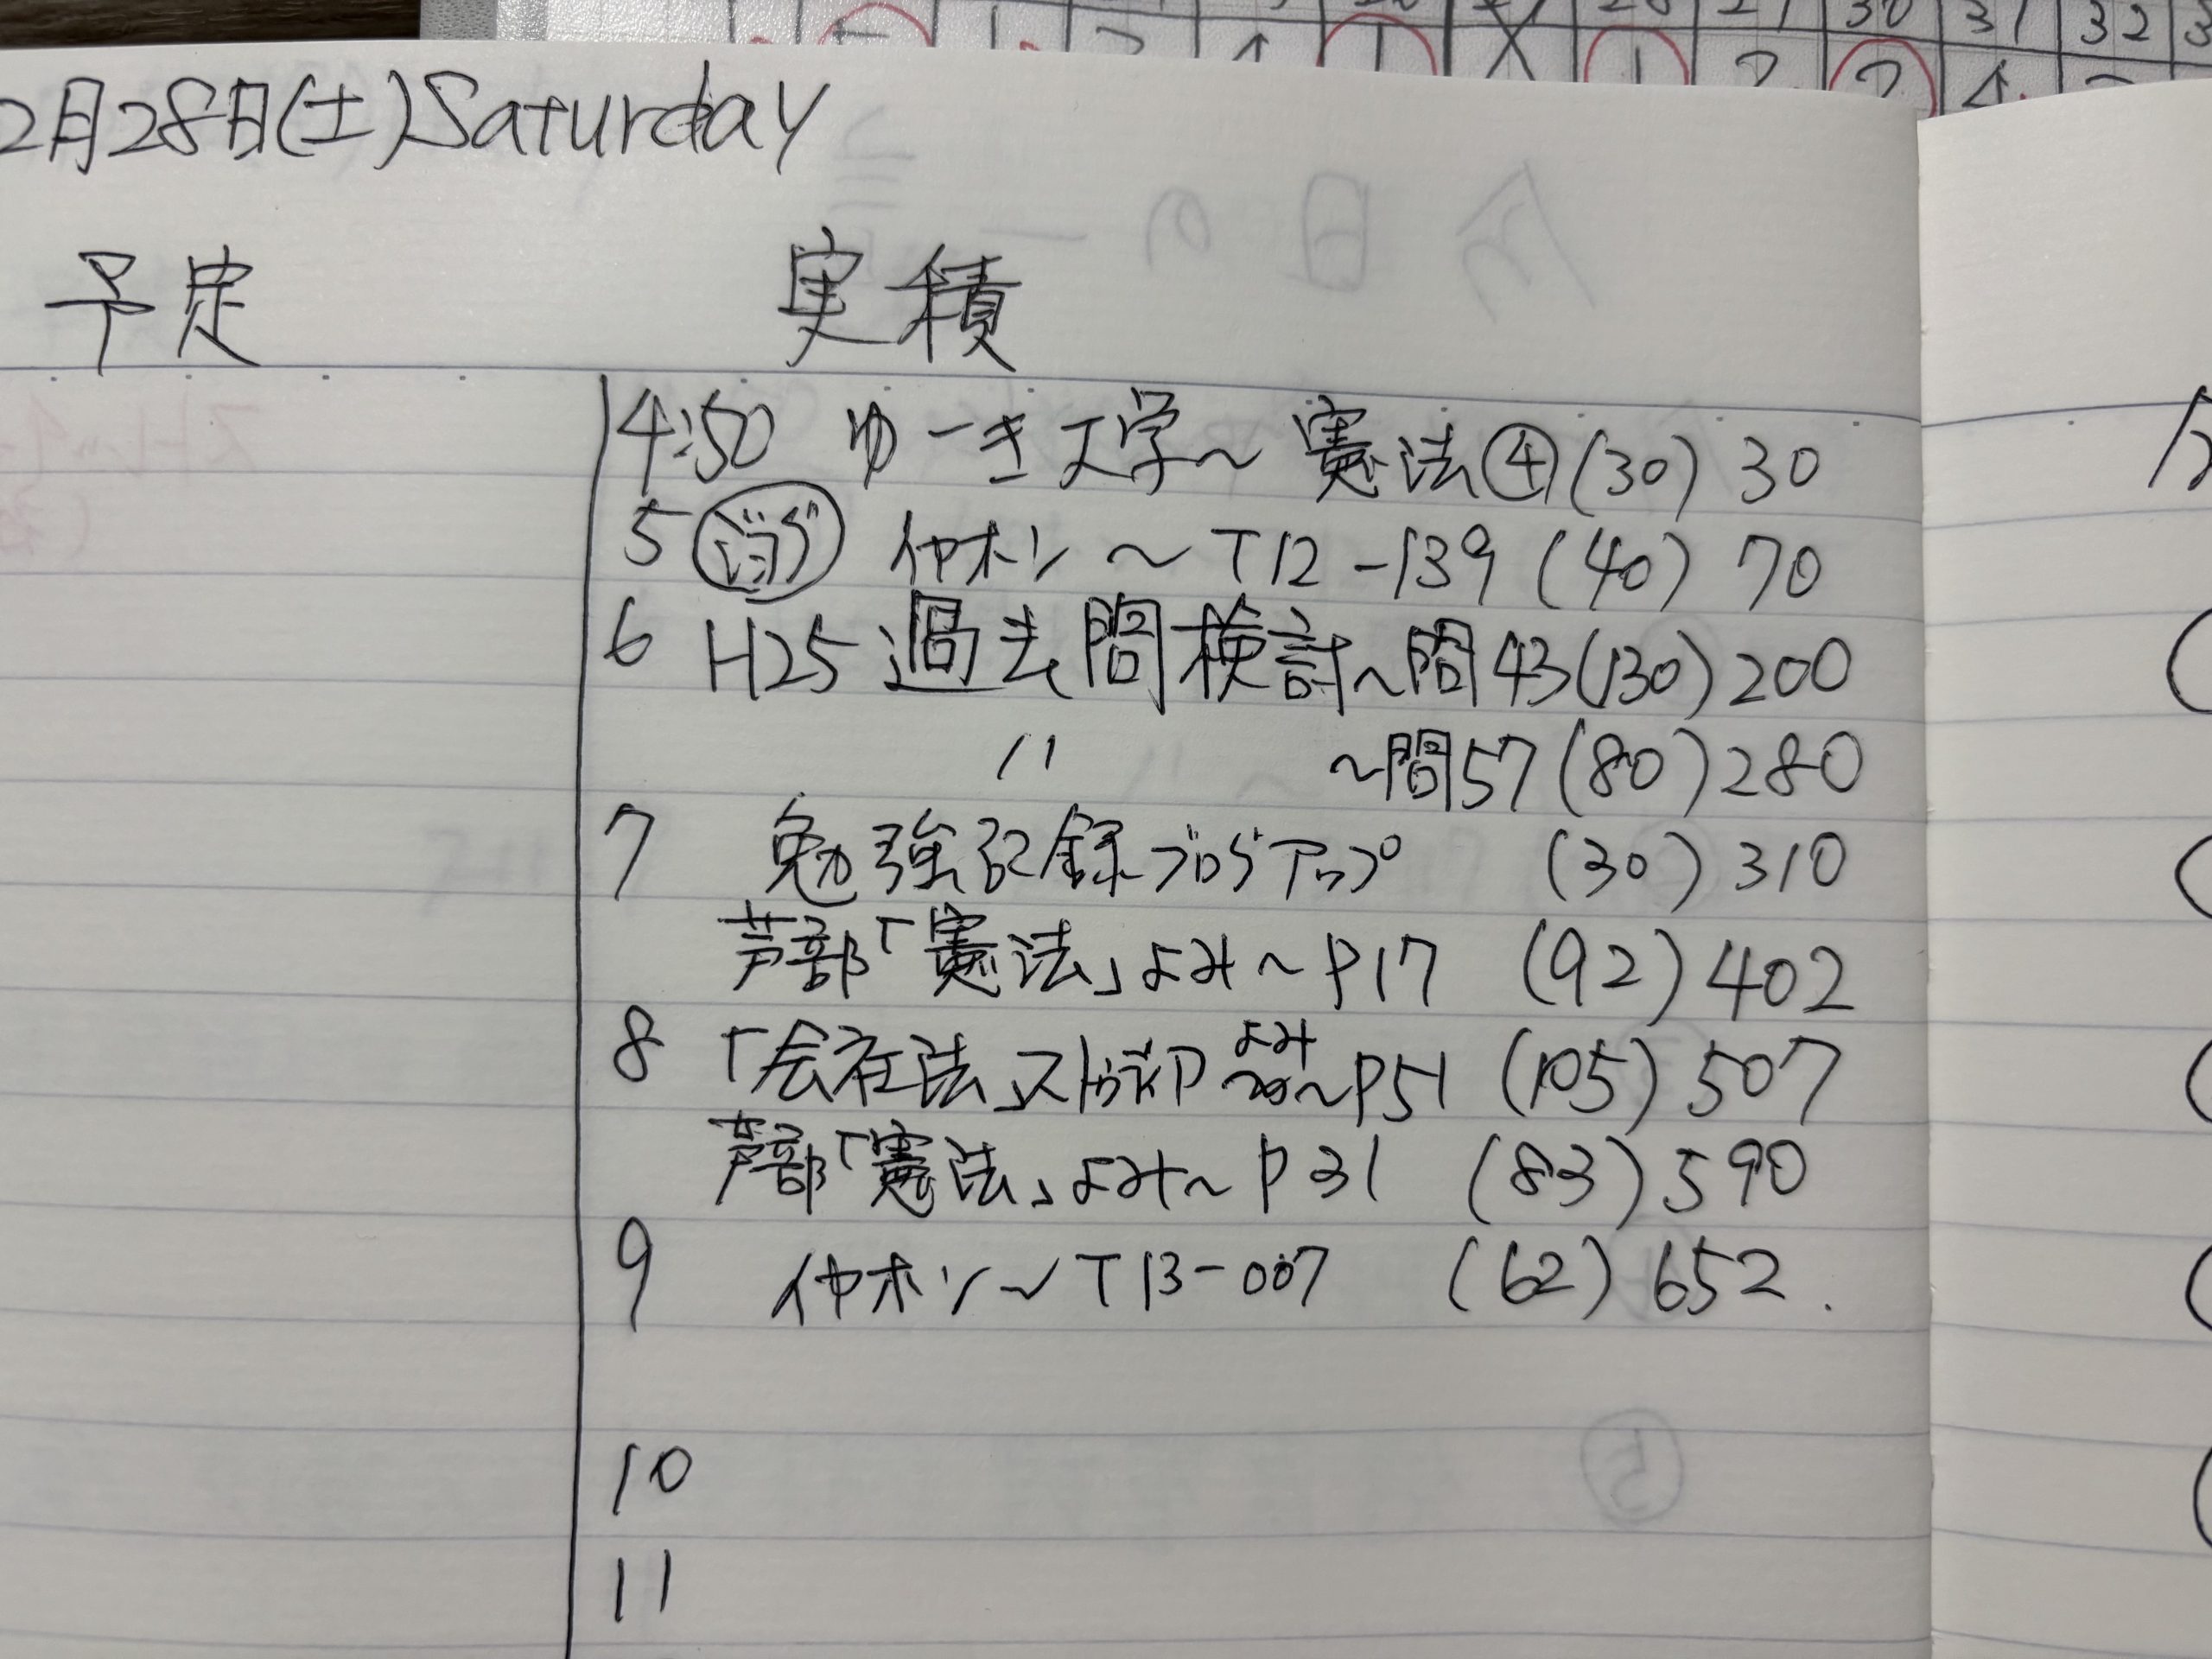 2月28日(土)Saturday
予定 実積
4:50 ゆーき大学～憲法④(30) 30
5 ジョグ イヤホン～T12-139 (40) 70
6 H25過去問検討～問43(130)200
〃 ～問57(80)280
7 勉強記録ブログアップ (30) 310
芦部「憲法」よみ～P17 (92)402
8 「会社法」ストゥディア よみ～P51 (105)507
芦部「憲法」よみ～P31 (83)590
9 イヤホン～T13-007 (62)652.
10
11